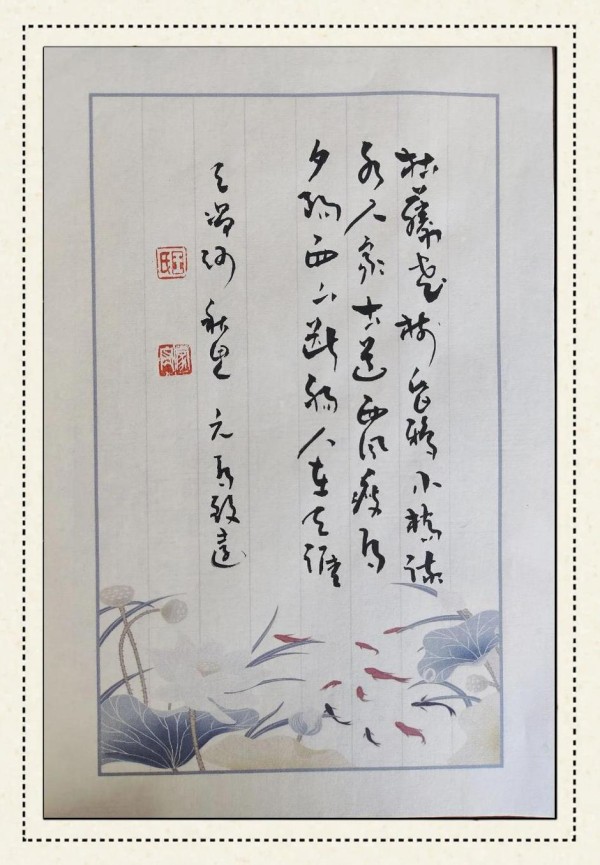 枯藤老树昏鸦小桥流
水人家古道西风瘦马
夕阳西下断肠人在天涯
天净沙 秋思 元 马致远